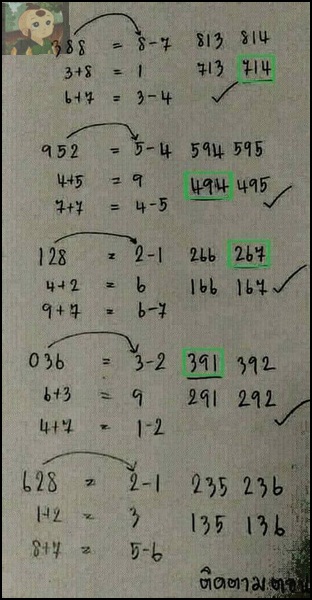 388 = 8-7 813 814
3+8 = 1 713 714
6+7 = 3-4
952 = 5-4 594 595
4+5 = 9 494 495
7+7 = 4-5
128 = 2-1 266 267
4+2 = 6 166 167
9+7 = 6-7
036 = 3-2 391 392
6+3 = 9 291 292
4+7 = 1-2
628 = 2-1 235 236
1+2 = 3 135 136
8+7 = 5-6
ติดตาม